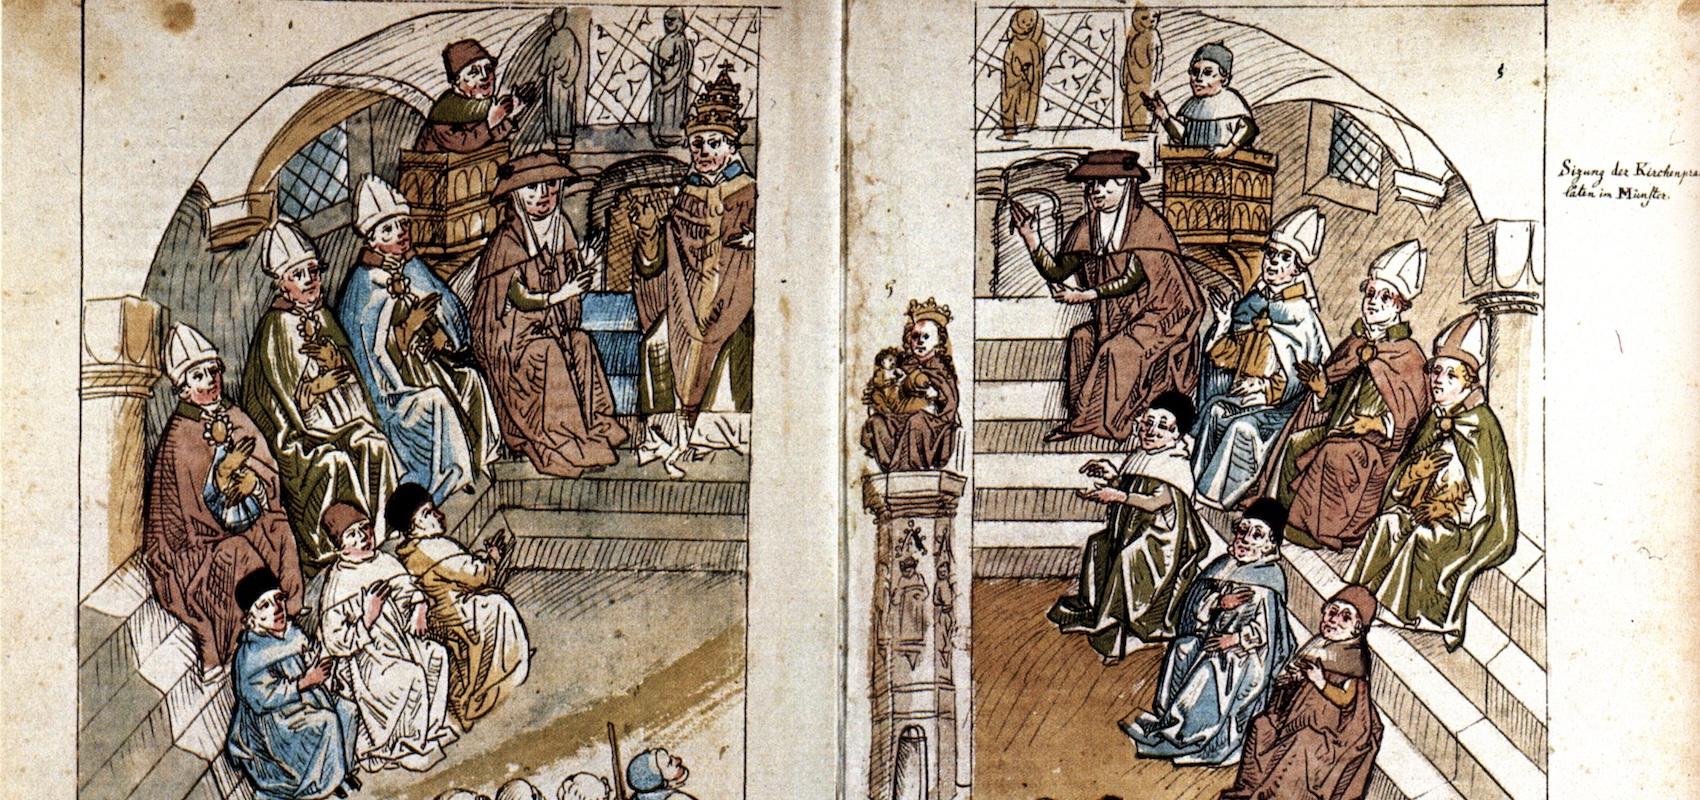 Sizung der Kirchenprä-
laten im Münster.